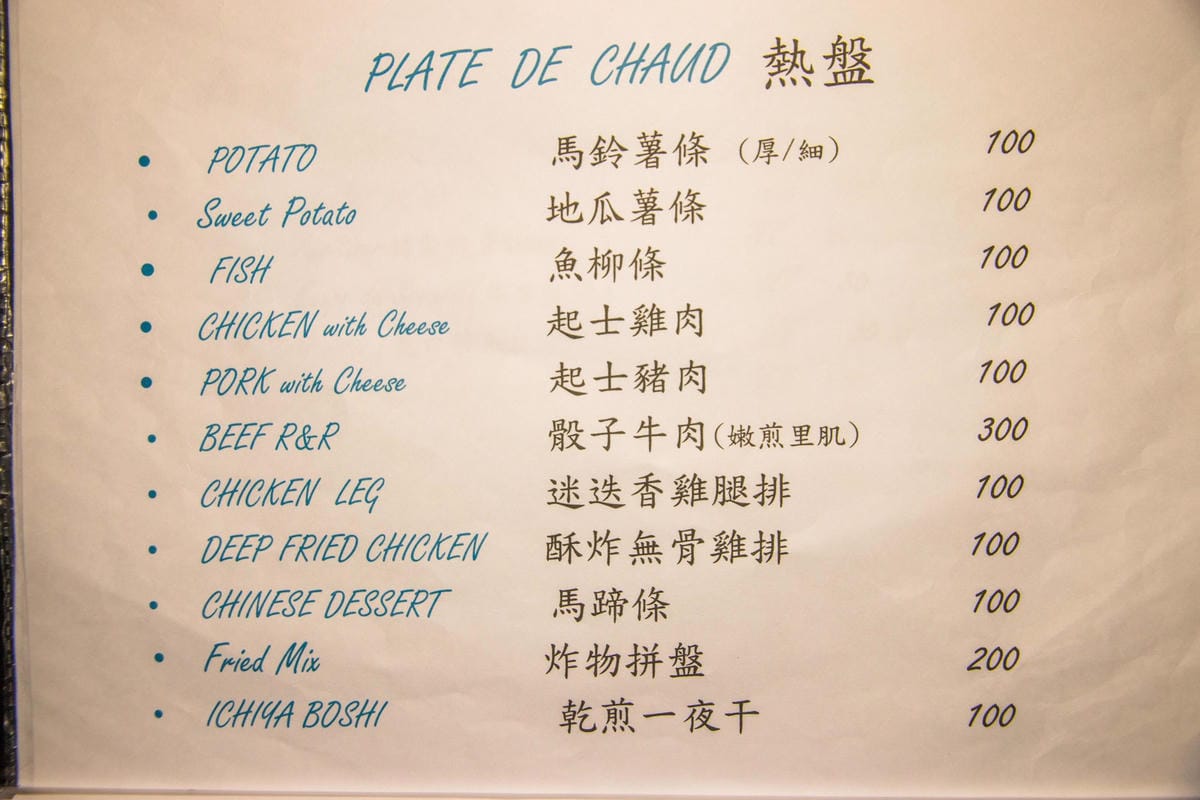 PLATE DE CHAUD 熱盤
• POTATO 馬鈴薯條 (厚/細) 100
• Sweet Potato 地瓜薯條 100
• FISH 魚柳條 100
• CHICKEN with Cheese 起士雞肉 100
• PORK with Cheese 起士豬肉 100
• BEEF R&R 骰子牛肉(嫩煎里肌) 300
• CHICKEN LEG 迷迭香雞腿排 100
• DEEP FRIED CHICKEN 酥炸無骨雞排 100
• CHINESE DESSERT 馬蹄條 100
• Fried Mix 炸物拼盤 200
• ICHIYA BOSHI 乾煎一夜干 100